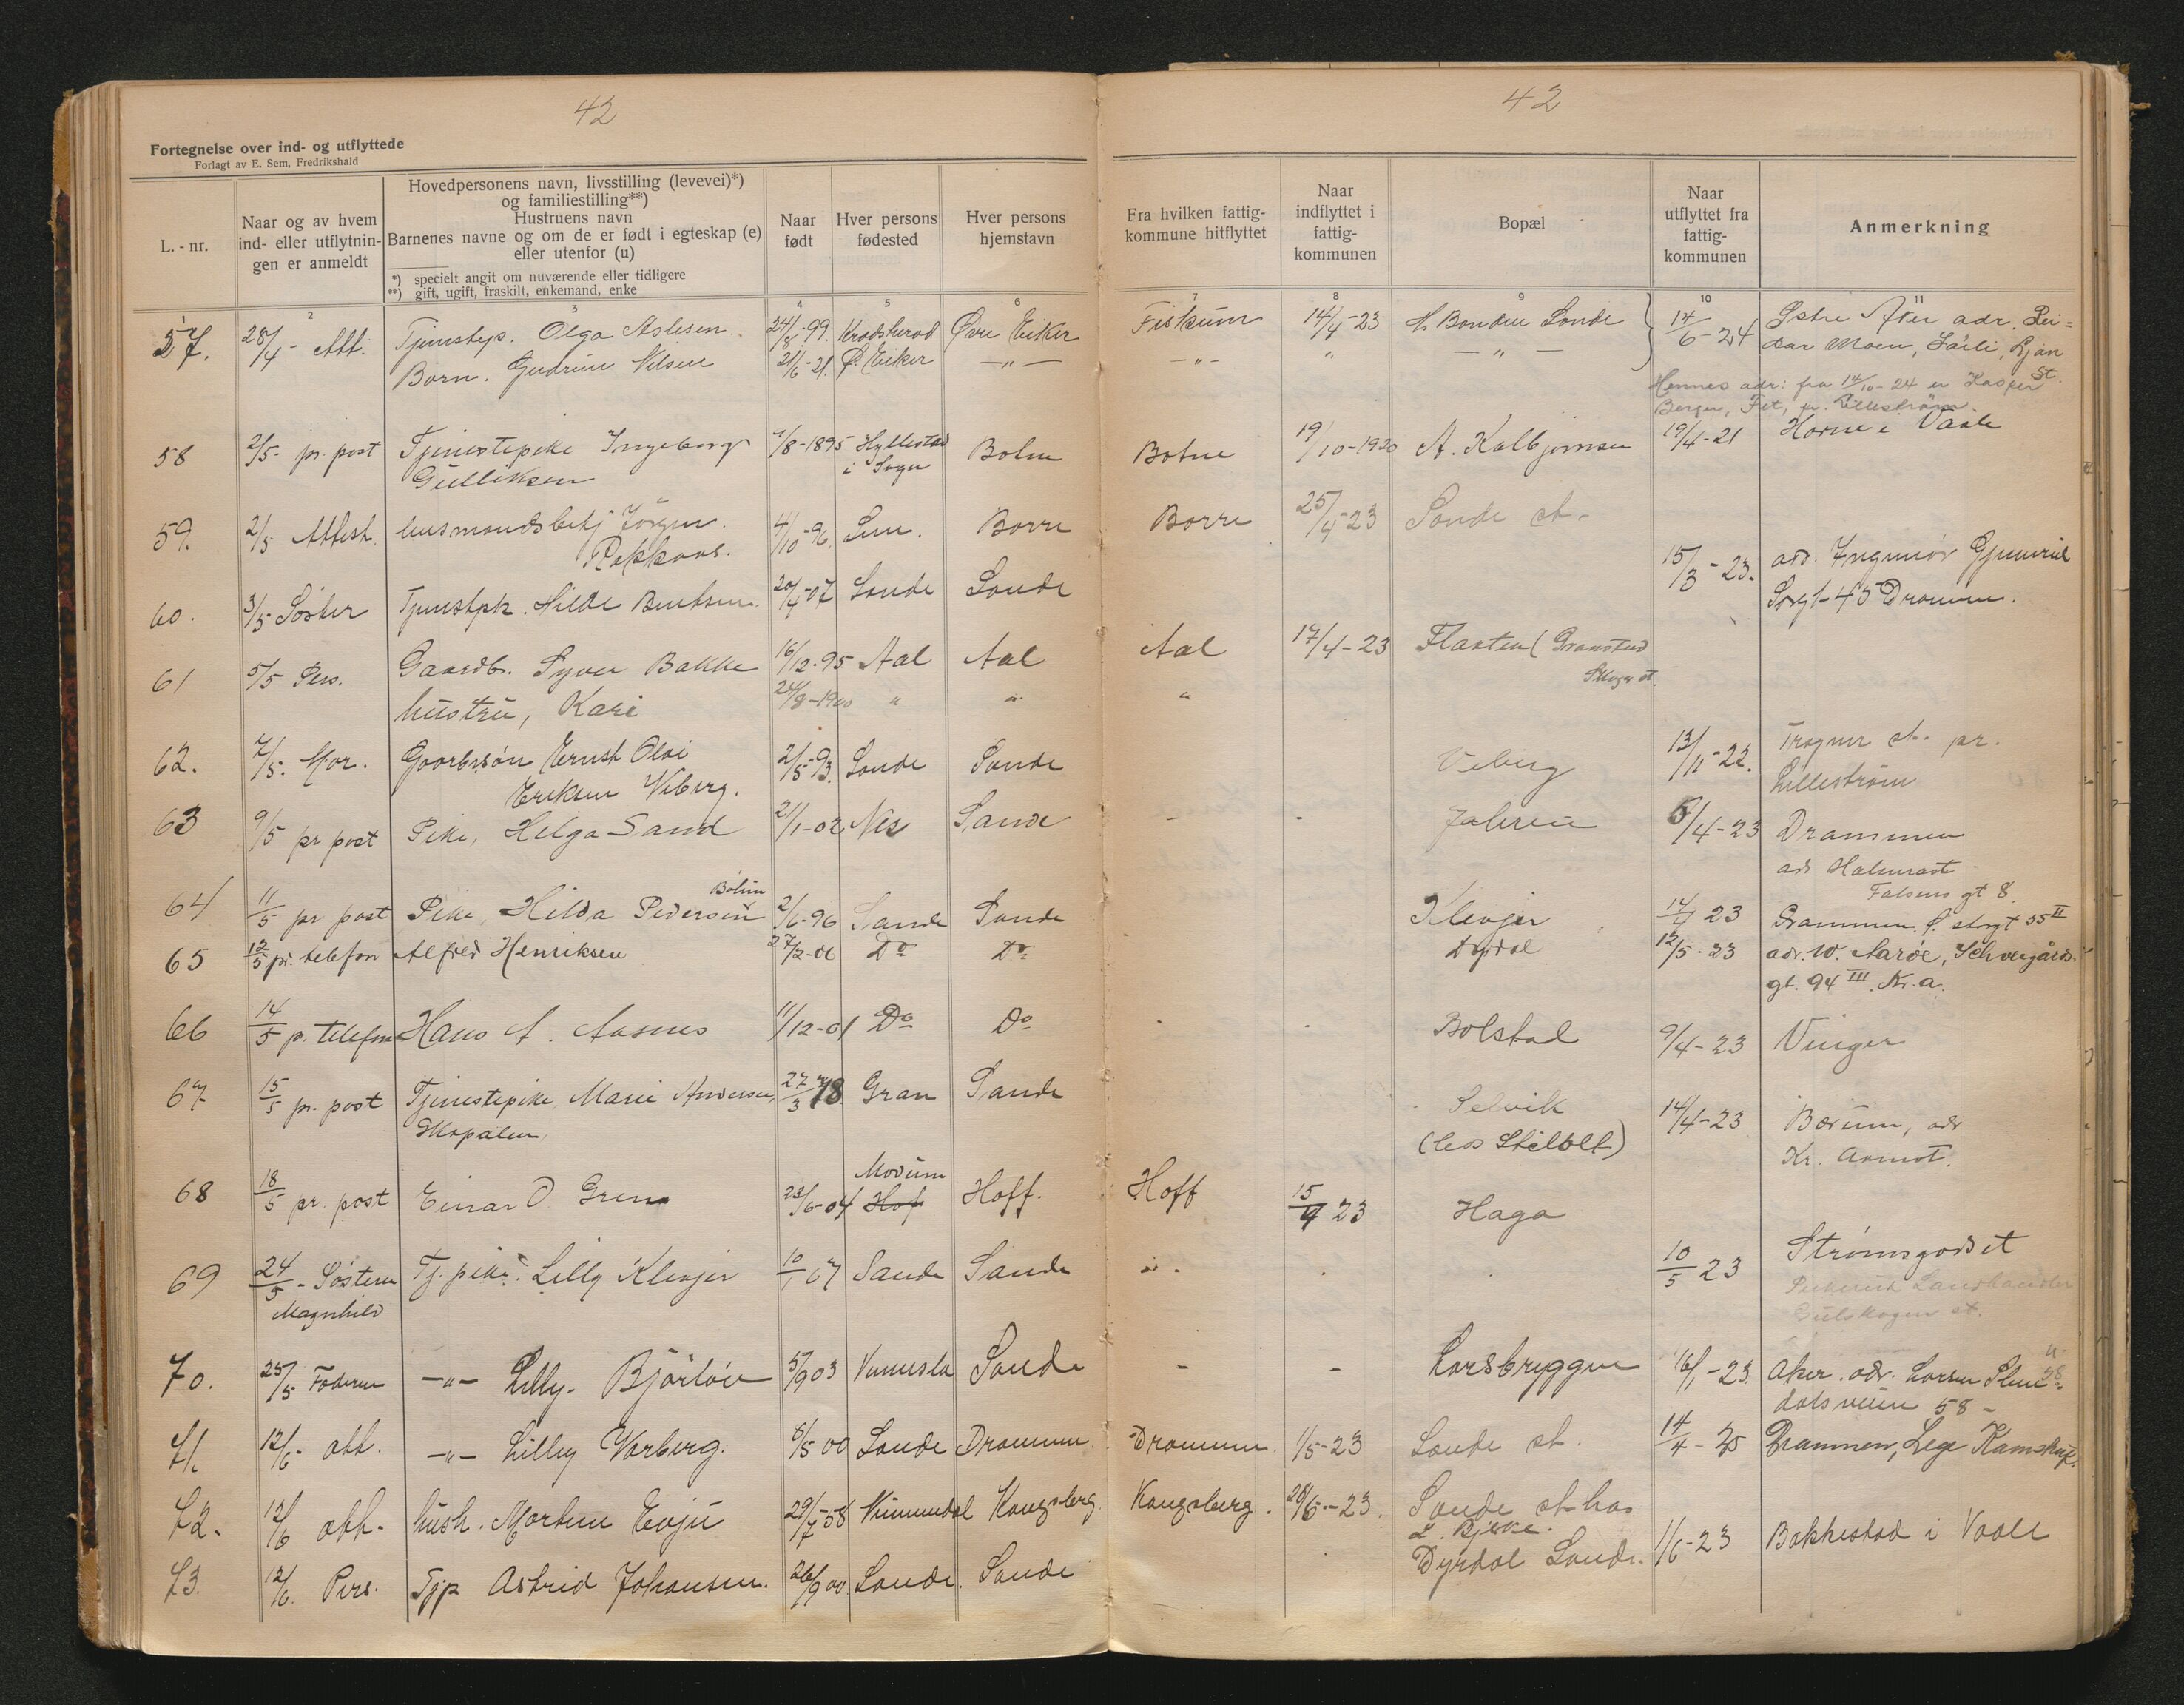 42
Fortegnelse over ind- og utflyttede
Forlagt av E. Sem, Fredrikshald
L. - nr.
Naar og av hvem
ind- eller utflytnin-
gen er anmeldt
Hovedpersonens navn, livsstilling (levevei)*)
og familiestilling**)
Hustruens navn
Barnenes navne og om de er født i egteskap (e)
eller utenfor (u)
*) specielt angit om nuværende eller tidligere
**) gift, ugift, fraskilt, enkemand, enke
Naar
født
Hver persons
fødested
Hver persons
hjemstavn
2 3 4 5 6
57. 28/4 - Att. Tjenstep. Olga Aslesen 24/8-99. Krødsherad Øvre Eiker
Barn. Gudrun Nilsen 21/6-21. Ø. Eiker —"—
58 2/5- pr. post Tjenestepike Ingeborg 1/8-1895 Hyllestad
Gulliksen i Sogn Botne
59. 2/5 Attest. husmandsbetj Jörgen 4/10-96. Sem. Borre
Rakkaas.
60. 3/5 Söster Tjenstpk. Hilda Berntsen. 20/4-07 Sande Sande
61 5/5 Pers. Gaardbr. Syver Bakke 16/12-95 Aal Aal
hustru, Kari 24/8-1900 " "
62. 7/5. Mor. Gaardbrsön Ernst Olai 2/5-93. Sande Sande
Eriksen Viberg.
63 9/5 pr post Pike, Helga Sand 21/1-02 Nes Sande
64 11/5 pr post Pike, Hilda Pedersen 2/6-96 Sande Sande
65 12/5 pr. telefon Alfred Henriksen 27/2-01 Do Do
66 14/5 p. telefon Hans A. Aasnes 11/12-01 Do Do
67 15/5 pr. post Tjenestepike, Marie Andersen, 27/3 78 Gran Sande
Skapalen.
68 18/5 pr. post Einar O Gren 23/6-04 Modum Hof Hoff.
69 24/5 - Sösteren Tj. pike. Lilly Klevjer 10/1 07 Sande Sande
Magnhild
70. 25/5 Faderen —"— Lilly. Björlöv 5/9 03 Vennesla Sande
71. 12/6 att. —"— Lilly Varberg. 6/5 00 Sande Drammen
72. 12/6 att. hush. Marten Evju 29/7-58 Nummedal Kongsberg.
73. 12/6. Pers. Tjp Astrid Johansen. 26/9 00 Sande. Sande
42
Fra hvilken fattig-
kommune hitflyttet
Naar
indflyttet i
fattig-
kommunen
Bopæl
Naar
utflyttet fra
fattig-
kommunen
Anmerkning
7 8 9 10 11
Fiskum 14/4-23 Bonden Sande 14/6-24 Östre Aker adr. Rei=
—"— " —"— dar Moen, Ljan
St.
Hennes adr: fra 14/10-24 er Kasper
Berger, Fet, pr. Lilleström.
Botne 19/10-1920 A. Kolbjørnsen 19/4-21 Horne i Vaale
Borre 25/4-23 Sande st-
15/3-23. adr. Ingeniör Gjemrud
Storgt-45 Drammen.
Aal 17/4-23 Flaaten (Granstad
Skoger st.
"
Viberg 13/11-22. Trøgner st. pr.
Lilleström
- - Jahren 5/4-23 Drammen
adr Halmrast
Falsens gt 8.
Klevjer 23 Drammen Ö. storgt 55 II
Dyrdal 12/5-23 adr. W. Aaröe, Schveigårds-
gt. 94 III. Kr.a.
Bolstad 9/4-23 Vinger
Selvik 14/4-23 Bærum, adr
(hos Stilvelt) Kr. Aamot.
Hoff 15/4 23 Haga
10/5 23 Strømsgodset
Landhandler
Gulskogen st.
- - Larsbryggen 16/1-23. Aker. adr. Larsen
dalsveien 58-
Drammen. 1/5-23 Sande st. 14/4-25 Drammen, Lege
Kongsberg. 20/6-23. Sande st hos
L. Bjerke.
Dyrdal Sande. 1/6-23 Bakkestad i Vaale